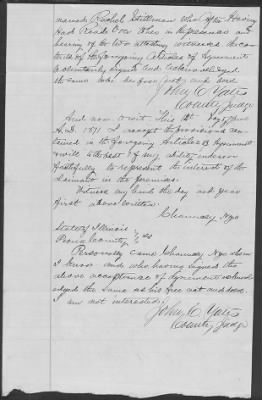 named Rachel Stillman who after having
had Read over these in the presence and
hearing of the two attesting witnesses the con
tents of the foregoing Articles of Agreement
voluntarily signed and acknowledged
the same as her free act and deed
John C Yates
County Judge
And now to wit this 12th day of June
A.D. 1871 I accept the provisions con
tained in the foregoing Articles of Agreement
& will to the best of my ability endeavor
faithfully to represent the interests of the
Claimant in the premises.
Witness my hand the day and year
first above written.
Chauncey Nye
State of Illinois
Peoria County ss
Personally came Chauncey Nye whom
I know and who having signed the
above acceptance of agreement acknowl
edged the same as his free act and deed.
I am not interested;
John C Yates
County Judge